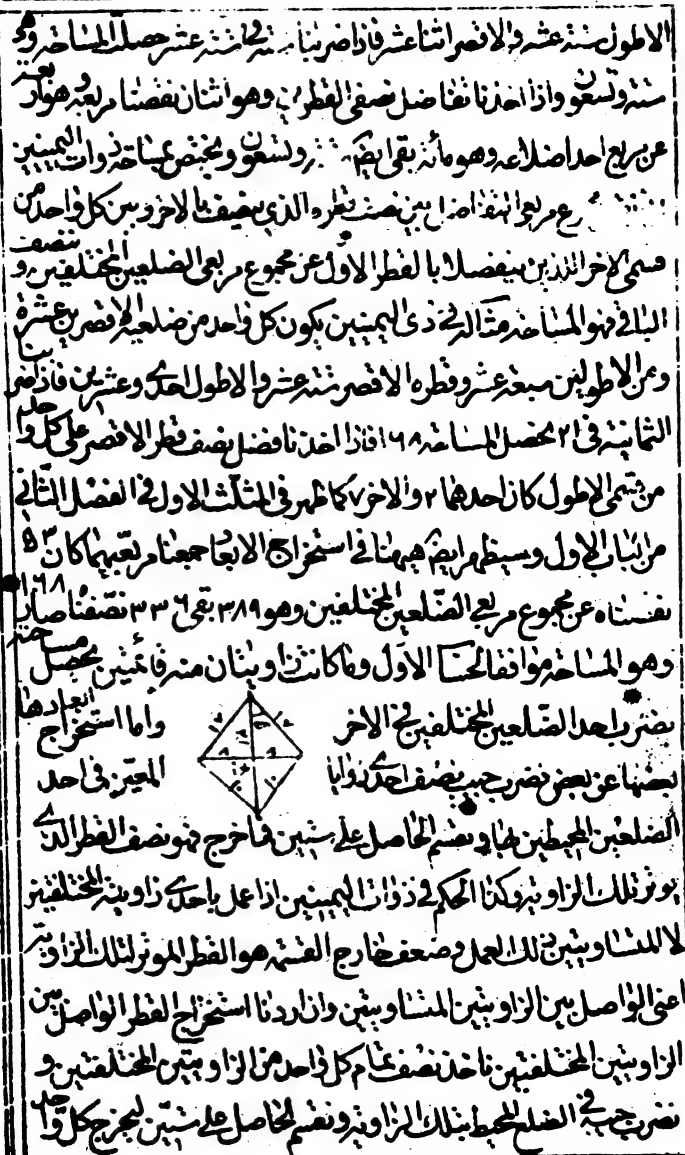 الاطول ستة عشر والاقصر اثنا عشر فاذا ضربنا ستة في ستة عشر حصلت المساحة وهو
ستة وتسعون واذا اخذنا تفاضل نصفي القطرين وهو اثنان نقصنا مربعه وهو اربعة
عن مربع احد اضلاعه وهو مائة بقي ايضا ستة وتسعون ويختص بمساحة ذوات اليمينين
مربعي التفاضل بين نصف قطره الذي ينصف بالاخر وبين كل واحد من
قسمي الاخر اللذين ينفصلان بالقطر الاول عن مجموع مربعي الضلعين المختلفين وتنصف
الباقي فهو المساحة مثاله في ذي اليمينين يكون كل واحد من ضلعيه الاقصرين عشرة
ومن الاطولين سبعة عشر وقطره الاقصر ستة عشر والاطول احدى وعشرين فاذا ضربنا
الثمانية في ٢١ يحصل المساحة ١٦٨ فاذا اخذنا فضل نصف قطر الاقصر على كل واحد
من قسمي الاطول كان احدهما ٢ والاخر ٧ كما ظهر في المثلث الاول في الفصل الثاني
من الباب الاول وسيظهر ايضا ههنا في استخراج الابعاد جمعنا مربعيهما كان ٥٣
نقصناه عن مجموع مربعي الضلعين المختلفين وهو ٣٨٩ بقي ٣٣٦ نصفناه صار ١٦٨
وهو المساحة موافقا لحسابنا الاول وما كانت زاويتان منه قائمتين يحصل مساحته
بضرب احد الضلعين المختلفين في الاخر واما استخراج ابعادها
بعضها عن بعض نضرب جيب نصف احدى زوايا المعين في احد
الضلعين المحيطين بها ونقسم الحاصل على ستين فما خرج فهو نصف القطر الذي
يوتر تلك الزاوية وكذا الحكم في ذوات اليمينين اذا عمل باحدى زاويتيه المختلفتين
لا المتساويتين ذلك العمل وضعف خارج القسمة هو القطر الموتر لتلك الزاوية
اعني الواصل بين الزاويتين المتساويتين وان اردنا استخراج القطر الواصل بين
الزاويتين المختلفتين ناخذ نصف تمام كل واحد من الزاويتين المختلفتين و
نضرب جيبه في الضلع المحيط بتلك الزاوية ونقسم الحاصل على ستين ليخرج كل واحد